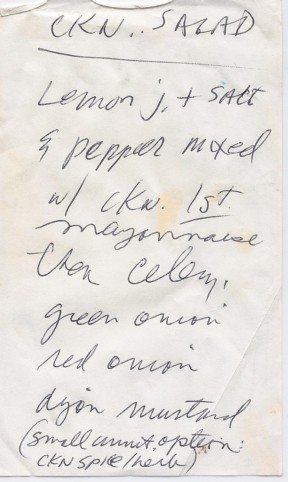 CKN.. SALAD
Lemon j. + SALT
& pepper mixed
w/ CKN. 1st.
mayonnaise
then celery,
green onion
red onion
dijon mustard
(small amnt option:
CKN SPICE/herb)